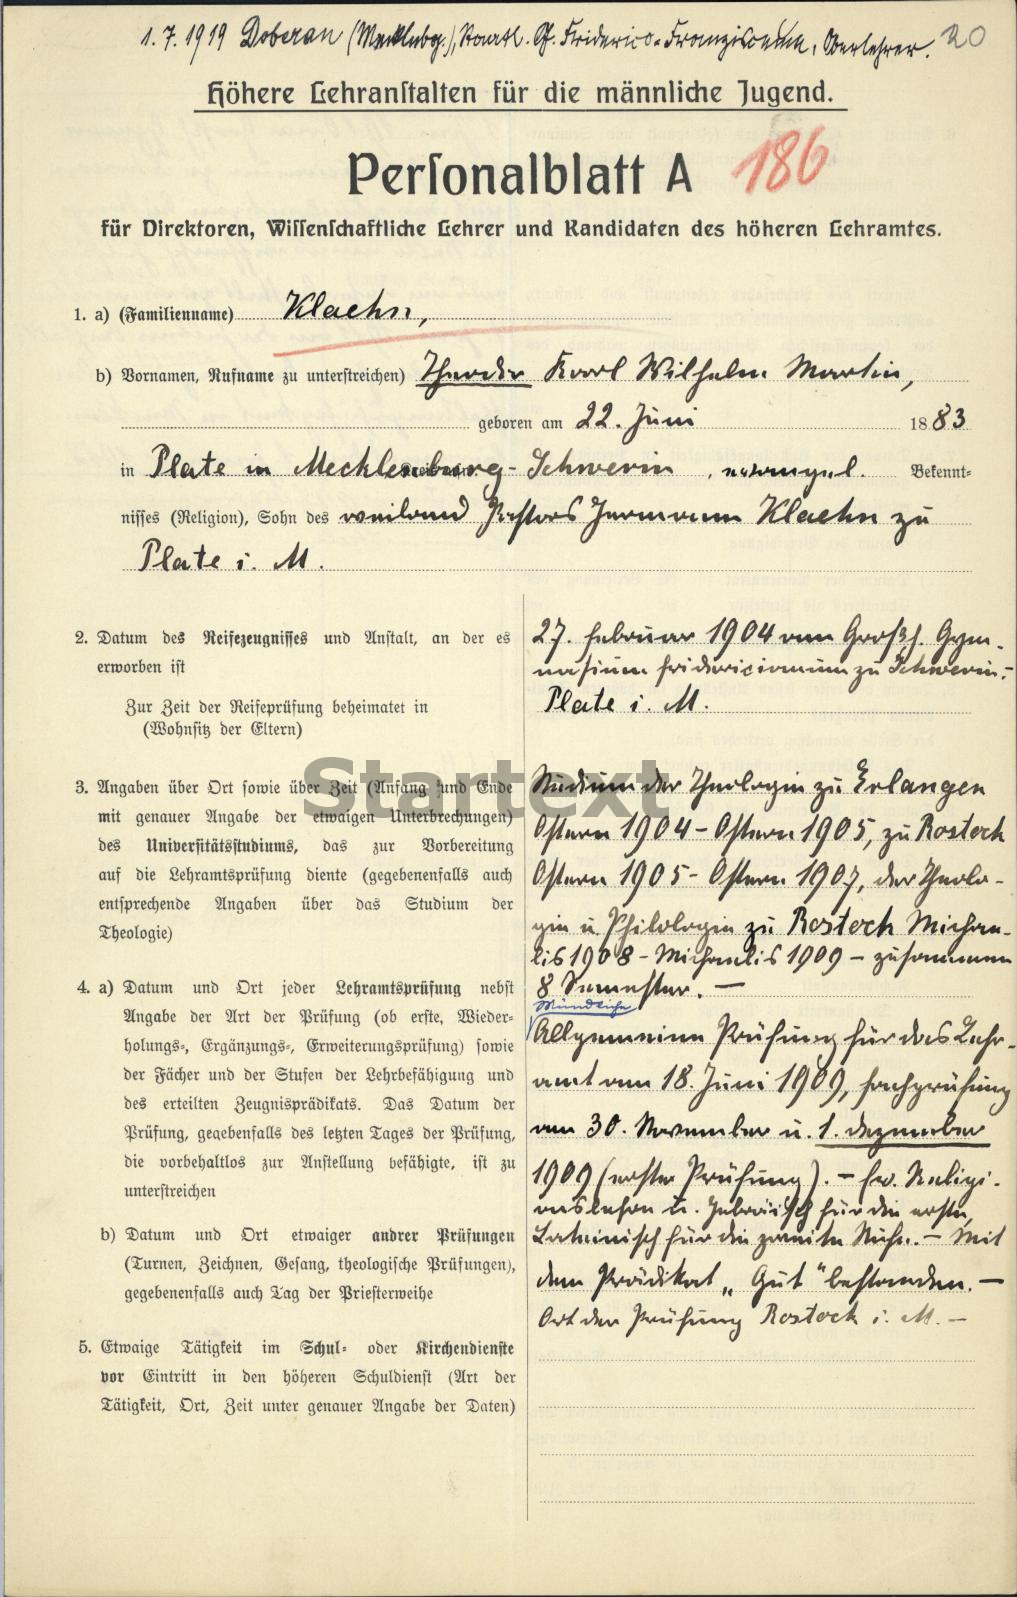 1. 7. 1919 Doberan (Mecklbg.), Staatl. G. Friderico-Franzisceum, Oberlehrer. 20
Höhere Lehranſtalten für die männliche Jugend.
Perſonalblatt A 186
für Direktoren, Wiſſenſchaftliche Lehrer und Kandidaten des höheren Lehramtes.
1. a) (Familienname) Klaehn,
b) Vornamen, Rufname zu unterſtreichen) Theodor Karl Wilhelm Martin,
geboren am 22. Juni 1883
in Plate in Mecklenburg-Schwerin, evangel. Bekennt-
niſſes (Religion), Sohn des weiland Paſtors Hermann Klaehn zu
Plate i. M.
2. Datum des Reifezeugniſſes und Anſtalt, an der es
erworben iſt
27. Februar 1904 am Großh. Gym-
naſium Fridericianum zu Schwerin.-
Zur Zeit der Reifeprüfung beheimatet in
(Wohnſitz der Eltern)
Plate i. M.
3. Angaben über Ort ſowie über Zeit (Anfang und Ende
mit genauer Angabe der etwaigen Unterbrechungen)
des Univerſitätsſtudiums, das zur Vorbereitung
auf die Lehramtsprüfung diente (gegebenenfalls auch
entſprechende Angaben über das Studium der
Theologie)
Startext
Studium der Theologie zu Erlangen
Oſtern 1904 - Oſtern 1905, zu Rostock
Oſtern 1905 - Oſtern 1907, der Theolo-
gie u. Philologie zu Rostock Michae-
lis 1908 - Michaelis 1909 - zuſammen
8 Semeſter. —
4. a) Datum und Ort jeder Lehramtsprüfung nebſt
Angabe der Art der Prüfung (ob erſte, Wieder-
holungs-, Ergänzungs-, Erweiterungsprüfung) ſowie
der Fächer und der Stufen der Lehrbefähigung und
des erteilten Zeugnisprädikats. Das Datum der
Prüfung, gegebenfalls des letzten Tages der Prüfung,
die vorbehaltlos zur Anſtellung befähigte, iſt zu
unterſtreichen
Mündliche
Allgemeine Prüfung für das Lehr-
amt am 18. Juni 1909, Fachprüfung
am 30. November u. 1. Dezember
1909 (erſte Prüfung). - Ev. Religi-
onslehre u. Hebräiſch für die erſte,
Lateiniſch für die zweite Stufe. - Mit
dem Prädikat „Gut" beſtanden. —
Ort der Prüfung Rostock i. M. -
b) Datum und Ort etwaiger andrer Prüfungen
(Turnen, Zeichnen, Geſang, theologiſche Prüfungen),
gegebenenfalls auch Tag der Prieſterweihe
5. Etwaige Tätigkeit im Schul- oder Kirchendienſte
vor Eintritt in den höheren Schuldienſt (Art der
Tätigkeit, Ort, Zeit unter genauer Angabe der Daten)